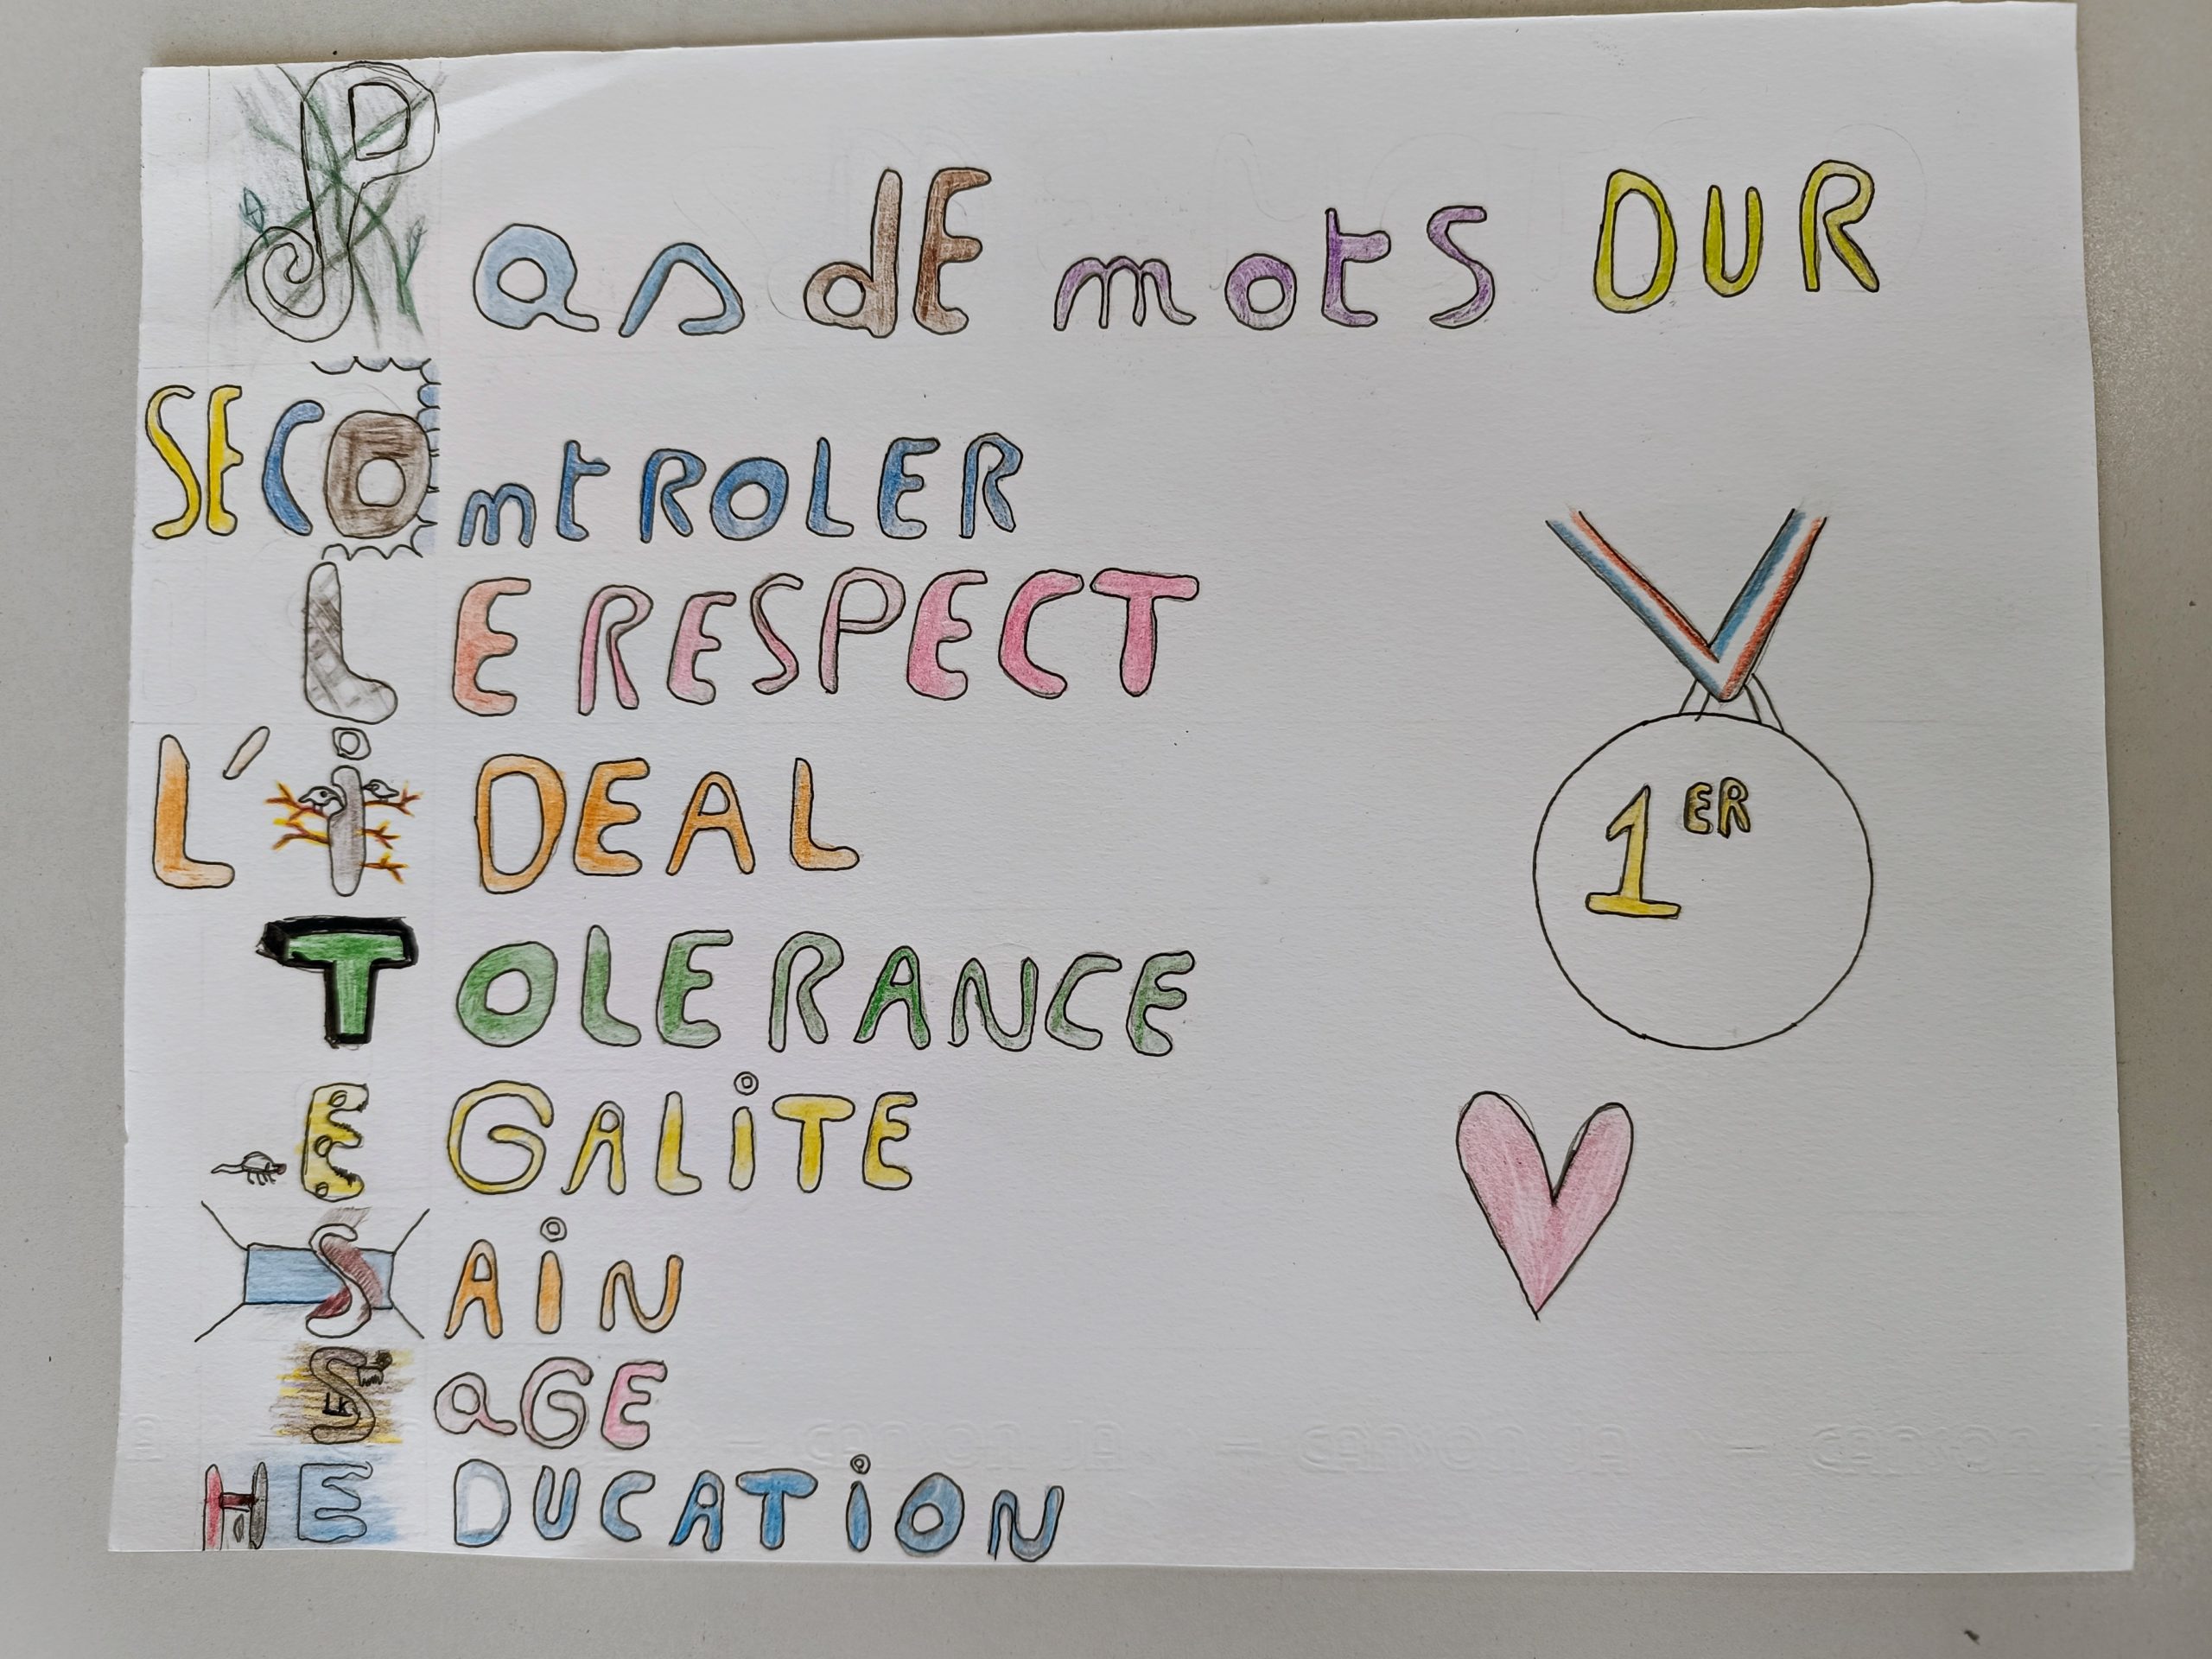 Pas dE mots DUR
SE COntROLER
LE RESPECT
L'iDEAL
TOLERANCE
EGALiTE
SAiN
SaGE
H EDUCATiON
1ER
LK